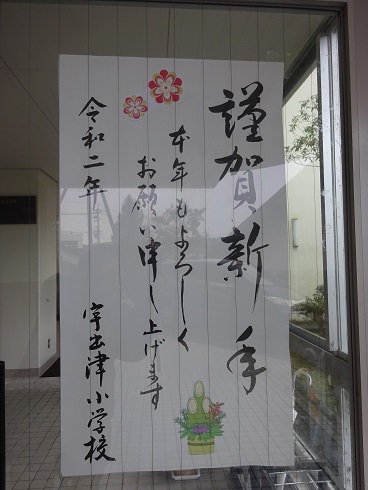 謹賀新年
本年もよろしく
お願い申し上げます
令和二年
宇出津小学校